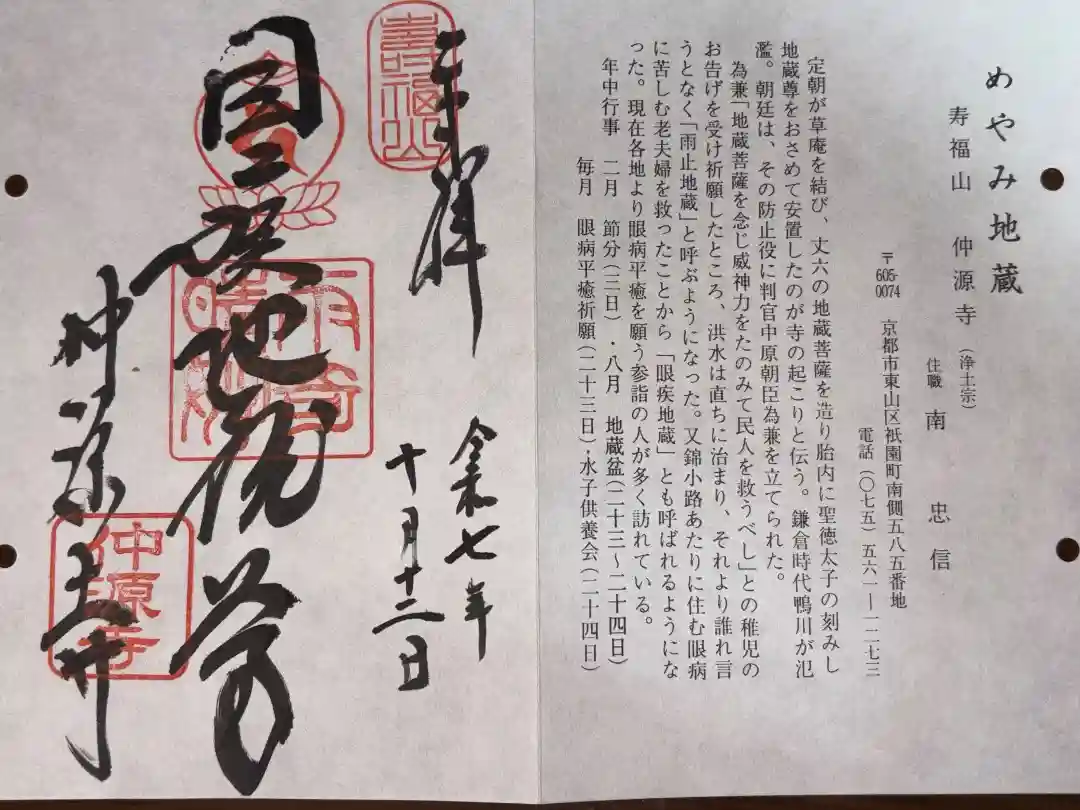 めやみ地蔵
寿福山 仲源寺（浄土宗）
住職 南 忠 信
〒605-0074 京都市東山区祇園町南側五八五番地
電話（〇七五）五六一―一二七三
定朝が草庵を結び、丈六の地蔵菩薩を造り胎内に聖徳太子の刻みし
地蔵尊をおさめて安置したのが寺の起こりと伝う。鎌倉時代鴨川が氾
濫。朝廷は、その防止役に判官中原朝臣為兼を立てられた。
為兼「地蔵菩薩を念じ威神力をたのみて民人を救うべし」との稚児の
お告げを受け祈願したところ、洪水は直ちに治まり、それより誰れ言
うとなく「雨止地蔵」と呼ぶようになった。又錦小路あたりに住む眼病
に苦しむ老夫婦を救ったことから「眼疾地蔵」とも呼ばれるようにな
った。現在各地より眼病平癒を願う参詣の人が多く訪れている。
年中行事 二月 節分（三日）・八月 地蔵盆（二十三～二十四日）
毎月 眼病平癒祈願（二十三日）・水子供養会（二十四日）
奉拝
壽福山
令和七年
十月十二日
地蔵尊
雨奇晴好
仲源寺
仲源寺